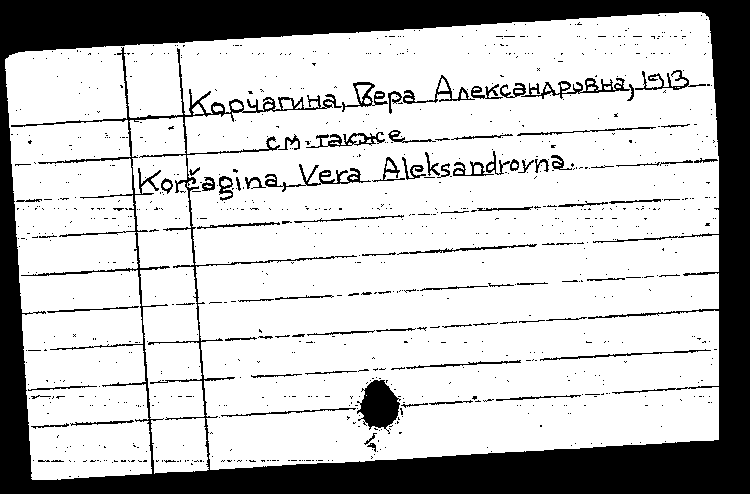 Корчагина, Вера Александровна, 1913
см. также
Korčagina, Vera Aleksandrovna.